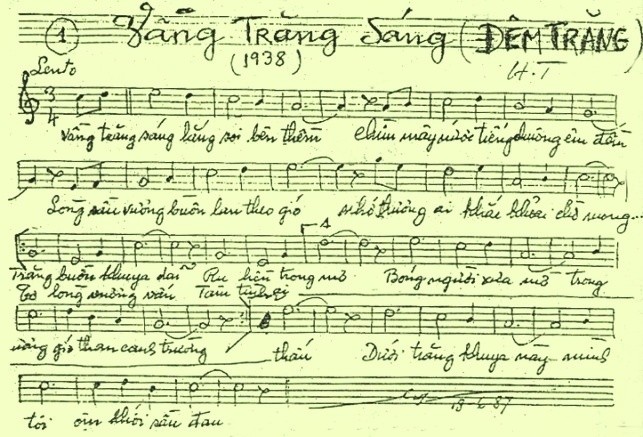 1 Vầng Trăng Sáng (ĐÊM TRĂNG)
(1938)
Lento H.T
3 4
Vầng trăng sáng lắng soi bên thềm chìm mây nước tiếng đường êm đềm
Lòng sầu vương buồn lan theo gió nhớ thương ai khắc khoải chờ mong...
Trăng buồn khuya dãi trong mơ Bóng người xưa mờ trong
Tơ lòng vương vấn Tâm
nắng gió than canh trường thâu Dưới trăng khuya này mình
tôi ôm khối sầu đau
18-6-87